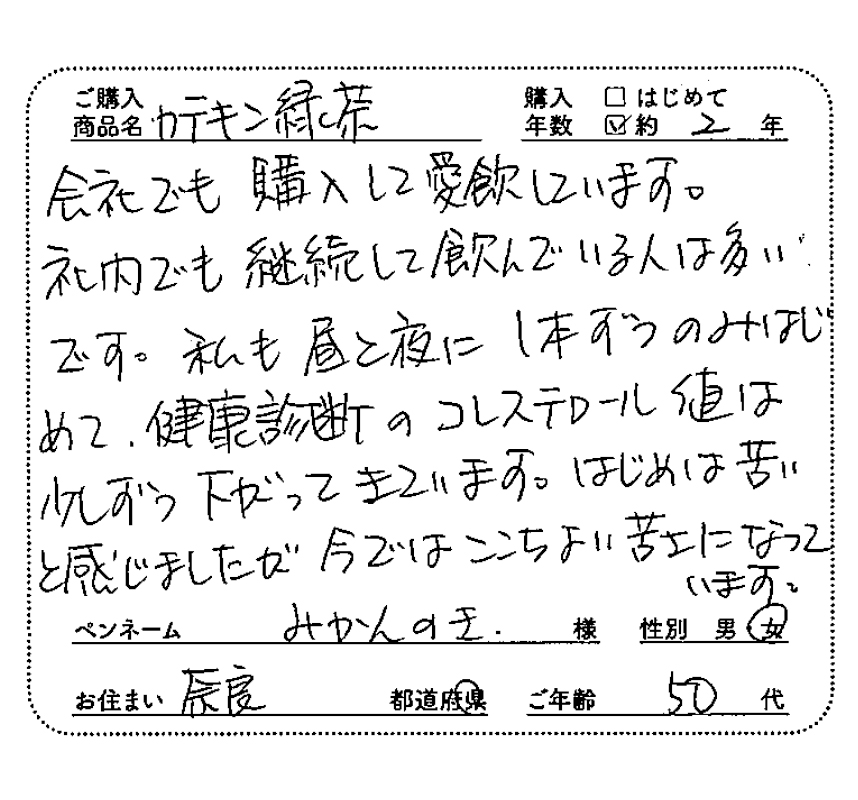 ご購入
商品名 カテキン緑茶
購入 □ はじめて
年数 ☑ 約 2 年
会社でも 購入して愛飲しています。
社内でも 継続して飲んでいる人は多い
です。私も 昼と夜に 1本ずつのみはじ
めて、健康診断のコレステロール値は
少しずつ 下がってきています。はじめは苦い
と感じましたが 今ではここちよい苦さになって
います。
ペンネーム みかんのき. 様 性別 男 女
お住まい 奈良 都道府県 ご年齢 50 代